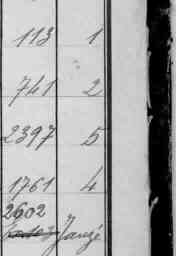 113 1
741 2
2397 5
1761 4
2602